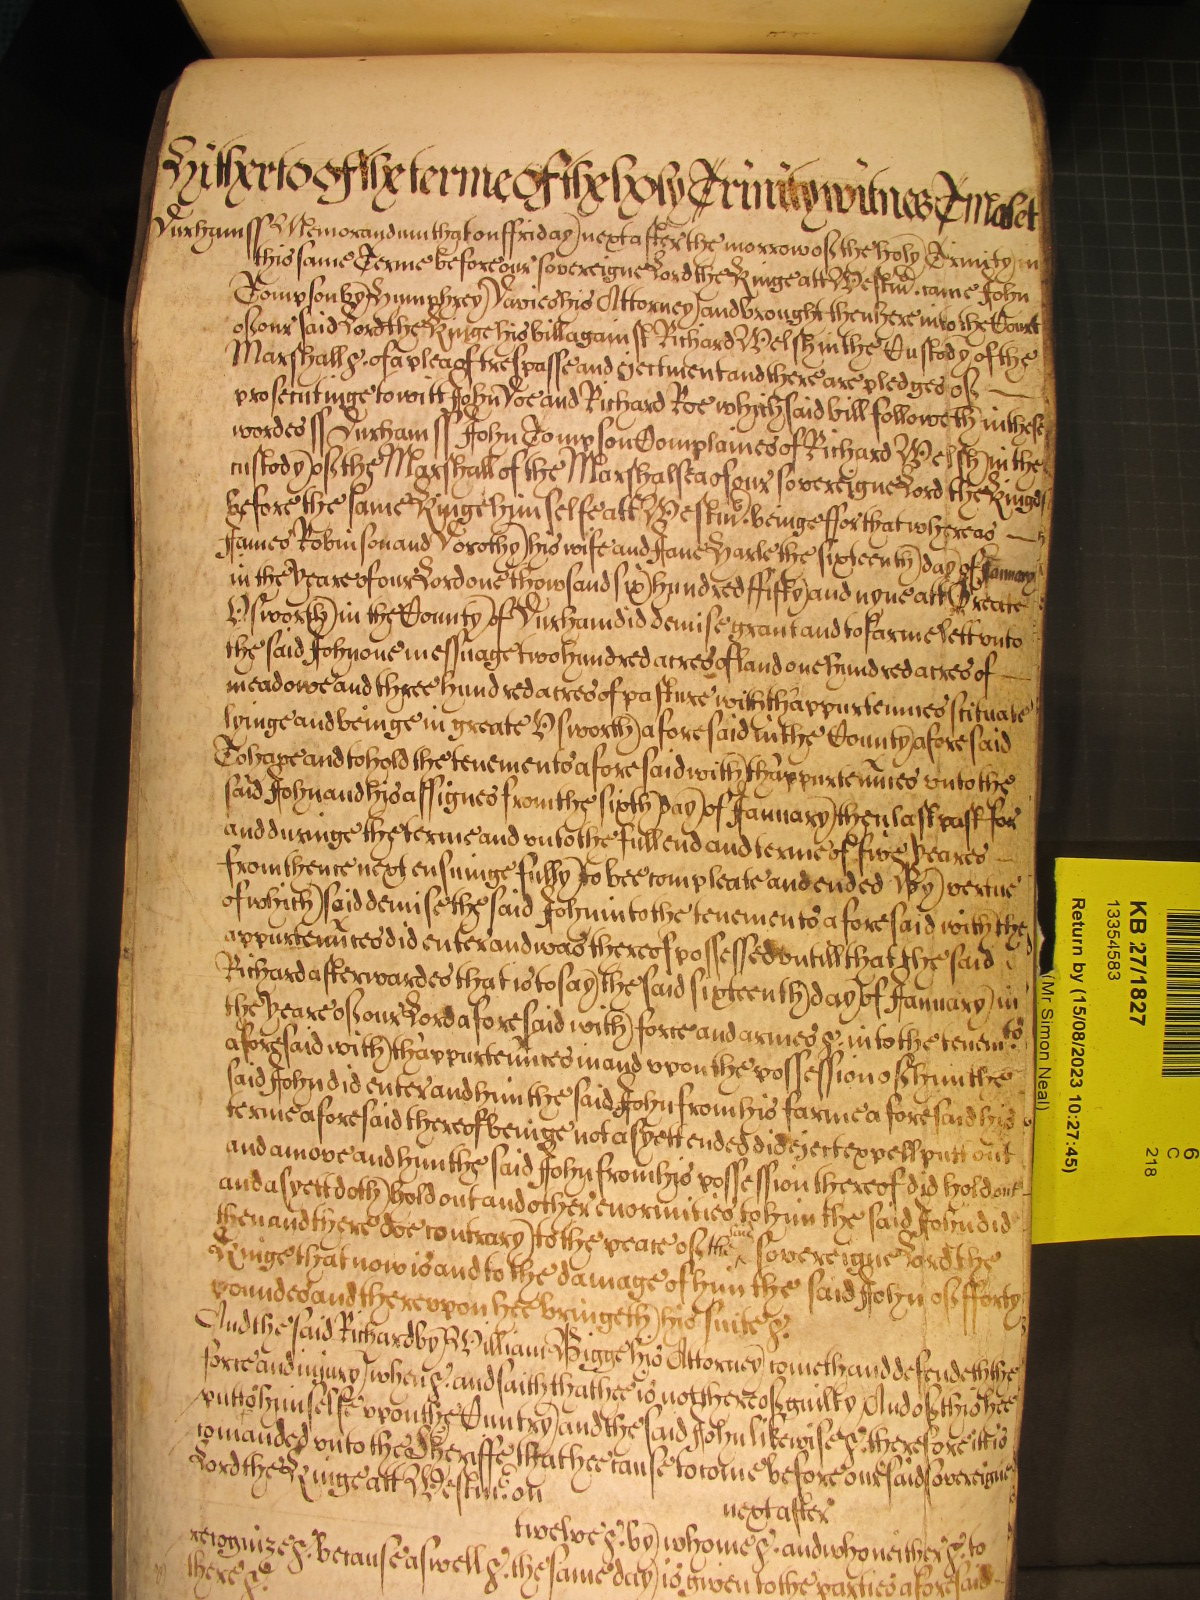 Hitherto of the terme of the holy Trinity witnes T Malet
Durham ss Memorandum that on ffriday next after the morrow of the holy Trinity in
this same Terme before our sovereigne Lord the Kinge att Westm̃. came John
Tompson by Humphrey Davies his Attorney and brought then here into the Court
of our said Lord the Kinge his bill against Richard Welsh in the Custody of the
Marshall &c. of a plea of trespasse and eiectment and there are pledges of
prosecutinge to witt John Doe and Richard Roe which said bill followeth in these
wordes ss Durham ss John Tompson Complaines of Richard Welsh in the
custody of the Marshall of the Marshalsea of our sovereigne Lord the Kinge
before the same Kinge himselfe att Westm̃. beinge ffor that whereas
James Robinson and Dorothy his wife and Jane Harle the sixteenth day of January
in the yeare of our Lord one thowsand six hundred ffifty and nyne att Greate
Usworth in the County of Durham did demise grant and to farme lett unto
the said John one messuage two hundred acres of land one hundred acres of
meadowe and three hundred acres of pasture with th'appurtennces scituate
lyinge and beinge in greate Usworth aforesaid in the County aforesaid
To have and to hold the tenements aforesaid with th'appurtennces unto the
said John and his assignes from the sixth day of January then last past for
and duringe the terme and unto the full end and terme of five yeares
from thence next ensuinge fully to bee compleate and ended By vertue
of which said demise the said John into the tenements aforesaid with the
appurtennces did enter and was thereof possessed untill that the said
Richard afterwardes that is to say the said sixteenth day of January in
the yeare of our Lord aforesaid with force and armes &c. into the tenemts
aforesaid with th'appurtennces in and upon the possession of him the
said John did enter and him the said John from his farme aforesaid his
terme aforesaid thereof beinge not as yett ended did eiect expell putt out
and amove and him the said John from his possession thereof did hold out
and as yett doth hold out and other enormities to him the said John did
then and there doe contrary to the peace of the said sovereigne Lord the
Kinge that now is and to the damage of him the said John of fforty
poundes and thereupon hee bringeth his suite &c.
And the said Richard by William Bigge his Attorney cometh and defendeth the
force and iniury when &c. and saith that hee is not thereof guilty And of this hee
putts himselfe upon the Cuntry and the said John likewise &c. therefore itt is
comanded unto the Sheriffe that hee cause to come before our said sovereigne
Lord the Kinge att Westm̃. on
next after
twelve &c. by whome &c. and who neither &c. to
recognize &c. because aswell &c. the same day is given to the parties aforesaid
there &c.
KB 27/1827
13354583
Return by (15/08/2023 10:27:45)
(Mr Simon Neal)
6
C
218